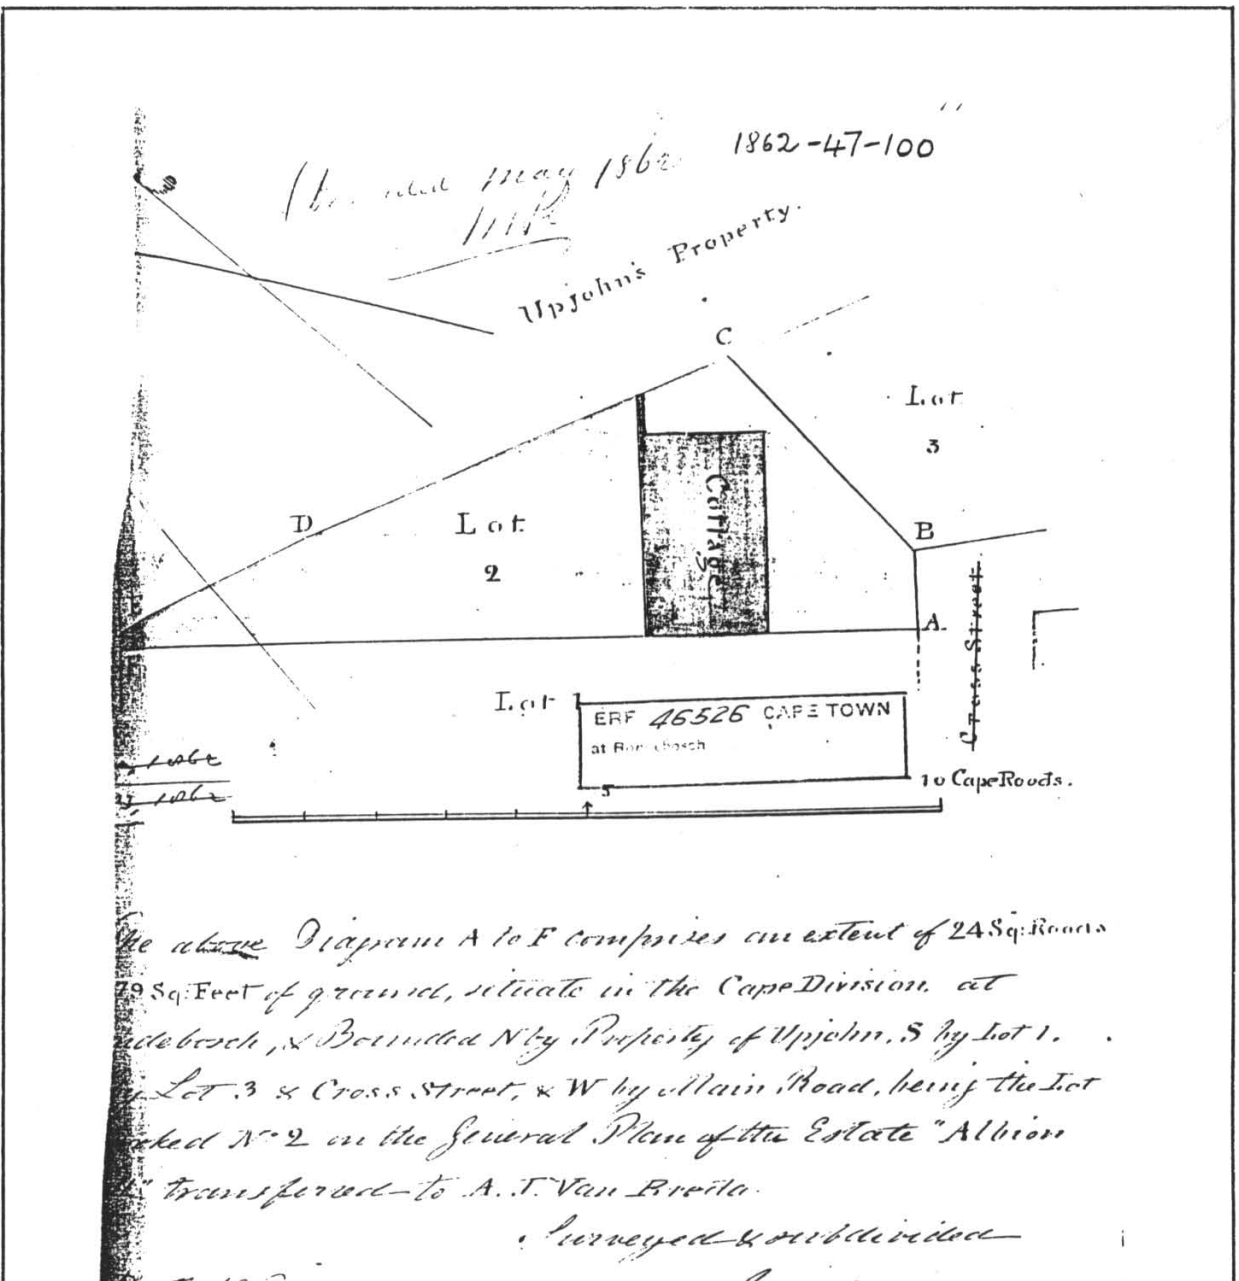 1862-47-100
May 1862
Upjohn's Property.
C
Lot
3
D
Lot
2
Cottage
B
A.
Cross Street
Lot 1
ERF 46526 CAPE TOWN
at Rondebosch
5
10 Cape Roods.
1862
1862
he above Diagram A to F comprises an extent of 24 Sq: Roods
79 Sq: Feet of ground, situate in the Cape Division, at
debosch, & Bounded N by Property of Upjohn, S by Lot 1.
Lot 3 & Cross Street, & W by Main Road, being the Lot
rked No 2 on the General Plan of the Estate "Albion
" transferred to A. J. Van Breda.
Surveyed & subdivided